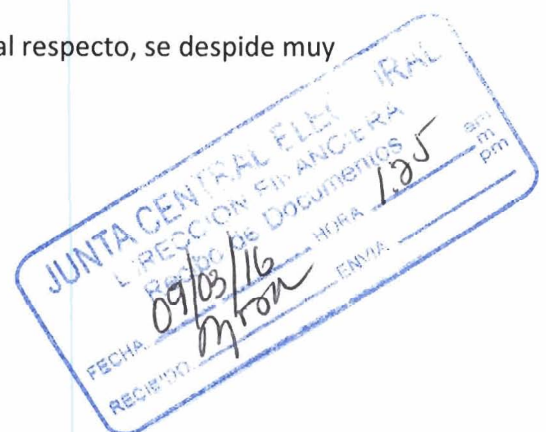 al respecto, se despide muy
JUNTA CENTRAL ELEC RAL
RECCION FINANCIERA
Recibo de Documentos
FECHA 09/03/16 HORA 1:25 am m pm
RECIBIDO ENVIA